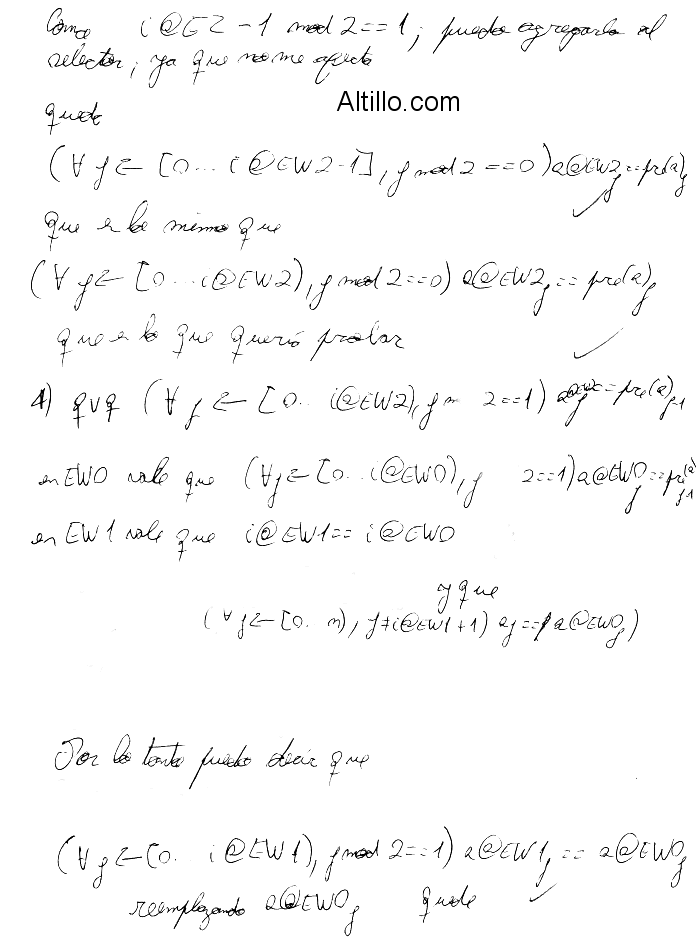 Como i@E2-1 mod 2==1, puedo agregarlo al
selector, ya que no me afecta
Altillo.com
queda
(∀ j ← [0... i@EW2-1], j mod 2==0) a@EW2j==pre(a)j
que es lo mismo que
(∀ j ← [0...i@EW2), j mod 2==0) a@EW2j==pre(a)j
que es lo que quería probar
4) qvq (∀ j ← [0.. i@EW2), j m 2==1) ==pre(a)j-1
en EW0 vale que (∀j ← [0...i@EW0), j 2==1) a@EW0j==pre(a)j-1
en EW1 vale que i@EW1==i@EW0
y que
(∀ j ← [0..n), j≠i@EW1+1) aj==a@EW0j)
Por lo tanto puedo decir que
(∀ j ← [0... i@EW1), j mod 2==1) a@EW1j == a@EW0j
reemplazando a@EW0j queda